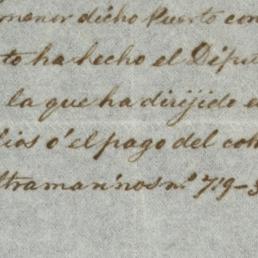 menor dicho Puerto con
to ha hecho el Diput
la que ha dirijido e
lios ó el pago del coh
ltramarinos n.º 719-3